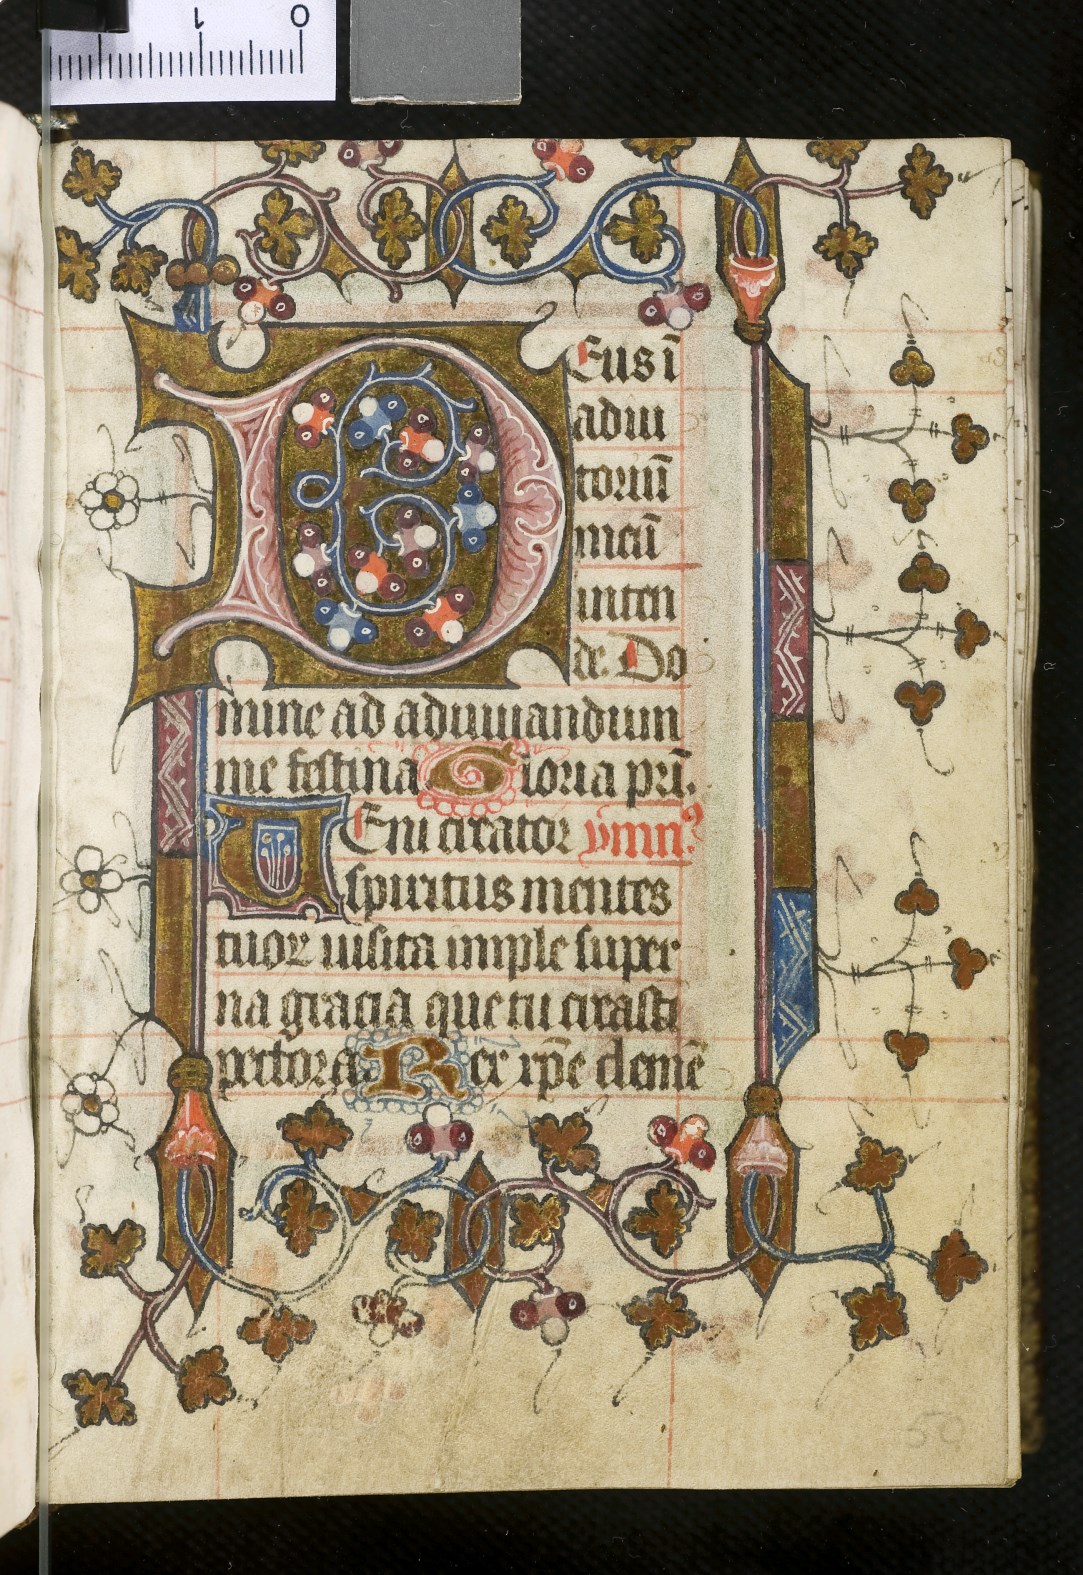 1 0
DEus ī
adiu
toriū
meū
inten
de. Do
mine ad adiuuandum
me festina Gloria pr̄i.
VEni creator ymn⁹
spiritus mentes
tuoꝝ uisita imple super
na gracia que tu creasti
pectora Rex xp̄e clemē
50